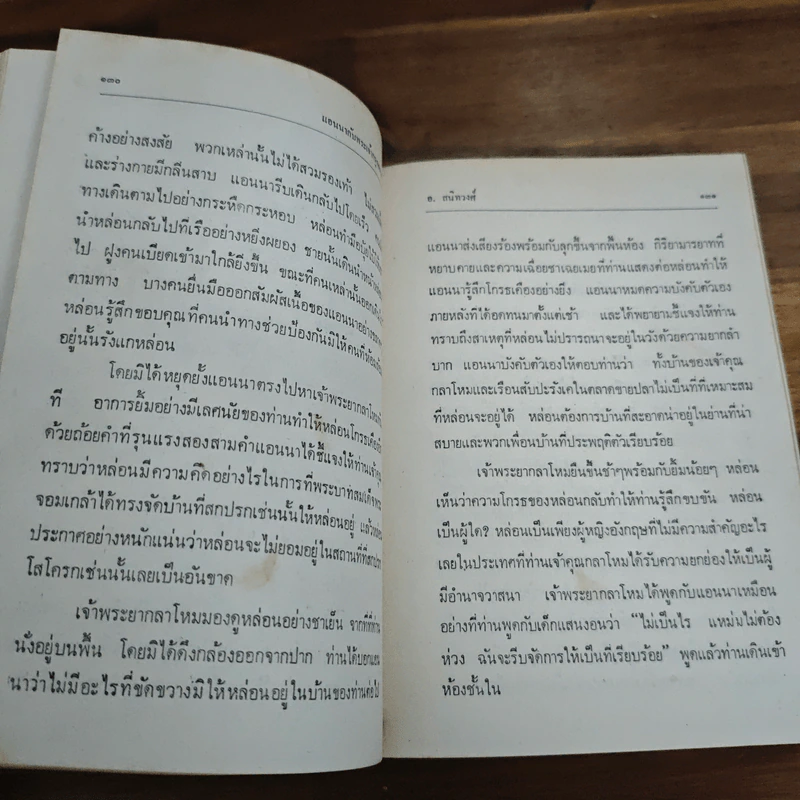 ๑๓๐
แอนนากับพระเจ้า
ค้างอย่างสงสัย พวกเหล่านั้นไม่ได้สวมรองเท้า
และร่างกายมีกลิ่นสาบ แอนนารีบเดินกลับไปโดยเร็ว
ทางเดินตามไปอย่างกระหืดกระหอบ หล่อนทำมือ
นำหล่อนกลับไปที่เรืออย่างหยิ่งผยอง ชายนั้นเดินนำหน้า
ไป ฝูงคนเบียดเข้ามาใกล้ยิ่งขึ้น ขณะที่คนเหล่านั้นออกเดิน
ตามทาง บางคนยื่นมือออกสัมผัสเนื้อของแอนนาอย่าง
หล่อนรู้สึกขอบคุณที่คนนำทางช่วยป้องกันมิให้คนที่
อยู่นั้นรังแกหล่อน
โดยมิได้หยุดยั้งแอนนาตรงไปหาเจ้าพระยากลาโหม
ที อาการยิ้มอย่างมีเลศนัยของท่านทำให้หล่อนโกรธเคือง
ด้วยถ้อยคำที่รุนแรงสองสามคำแอนนาได้ชี้แจงให้ท่าน
ทราบว่าหล่อนมีความคิดอย่างไรในการที่พระบาทสมเด็จพระ
จอมเกล้าได้ทรงจัดบ้านที่สกปรกเช่นนั้นให้หล่อนอยู่ แล้ว
ประกาศอย่างหนักแน่นว่าหล่อนจะไม่ยอมอยู่ในสถานที่ที่สกปรก
โสโครกเช่นนั้นเลยเป็นอันขาด
เจ้าพระยากลาโหมมองดูหล่อนอย่างชาเย็น จากที่ที่ท่าน
นั่งอยู่บนพื้น โดยมิได้ดึงกล้องออกจากปาก ท่านได้บอกแอน
นาว่าไม่มีอะไรที่ขัดขวางมิให้หล่อนอยู่ในบ้านของท่านต่อไป
อ. สนิทวงศ์
๑๓๑
แอนนาส่งเสียงร้องพร้อมกับลุกขึ้นจากพื้นห้อง กิริยามารยาทที่
หยาบคายและความเฉื่อยชาเฉยเมยที่ท่านแสดงต่อหล่อนทำให้
แอนนารู้สึกโกรธเคืองอย่างยิ่ง แอนนาหมดความบังคับตัวเอง
ภายหลังที่ได้อดทนมาตั้งแต่เช้า และได้พยายามชี้แจงให้ท่าน
ทราบถึงสาเหตุที่หล่อนไม่ปรารถนาจะอยู่ในวังด้วยความยากลำ
บาก แอนนาบังคับตัวเองให้ตอบท่านว่า ทั้งบ้านของเจ้าคุณ
กลาโหมและเรือนสับปะรังเคในตลาดขายปลาไม่เป็นที่ที่เหมาะสม
ที่หล่อนจะอยู่ได้ หล่อนต้องการบ้านที่สะอาดน่าอยู่ในย่านที่น่า
สบายและพวกเพื่อนบ้านที่ประพฤติตัวเรียบร้อย
เจ้าพระยากลาโหมยืนขึ้นช้าๆพร้อมกับยิ้มน้อยๆ หล่อน
เห็นว่าความโกรธของหล่อนกลับทำให้ท่านรู้สึกขบขัน หล่อน
เป็นผู้ใด? หล่อนเป็นเพียงผู้หญิงอังกฤษที่ไม่มีความสำคัญอะไร
เลยในประเทศที่ท่านเจ้าคุณกลาโหมได้รับความยกย่องให้เป็นผู้
มีอำนาจวาสนา เจ้าพระยากลาโหมได้พูดกับแอนนาเหมือน
อย่างที่ท่านพูดกับเด็กแสนงอนว่า “ไม่เป็นไร แหม่มไม่ต้อง
ห่วง ฉันจะรีบจัดการให้เป็นที่เรียบร้อย” พูดแล้วท่านเดินเข้า
ห้องชั้นใน